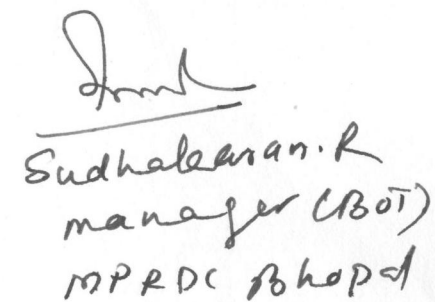 Sudhakaran.R
manager (BOT)
MPRDC Bhopal